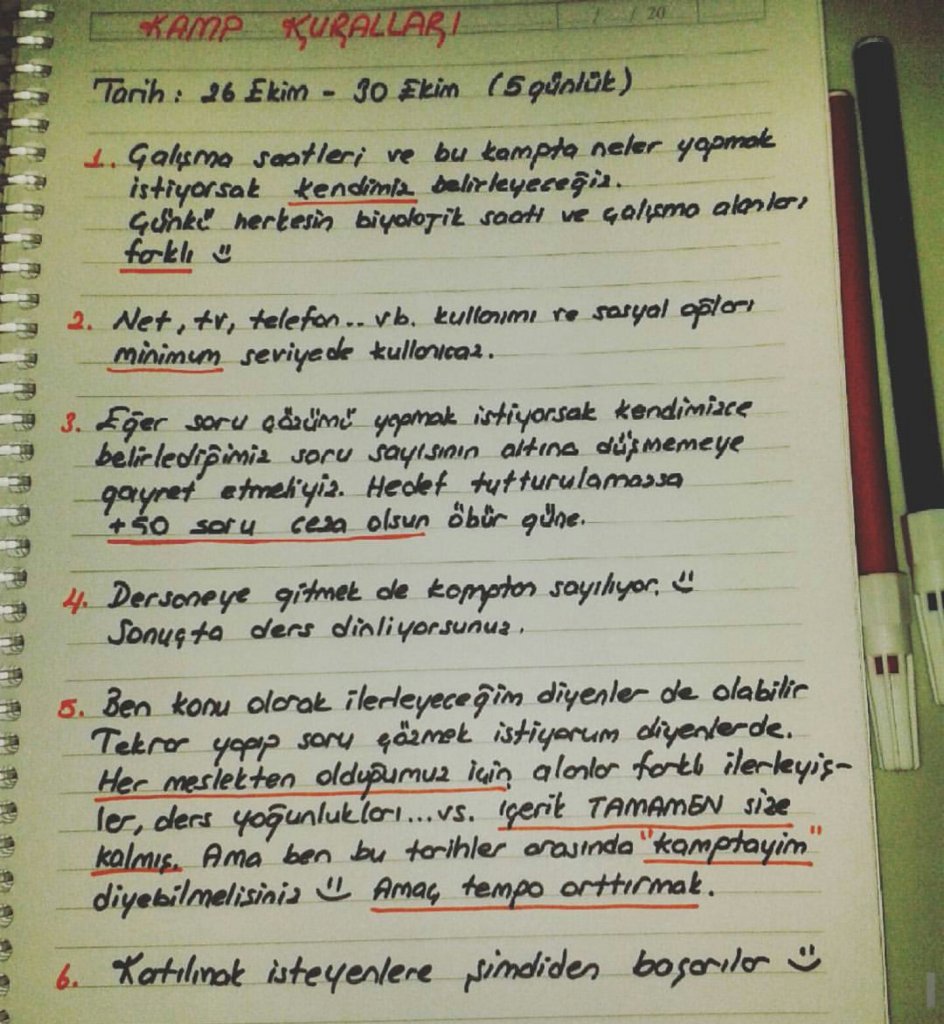 KAMP KURALLARI
/ / 20
Tarih : 26 Ekim - 30 Ekim (5 günlük)
1. Çalışma saatleri ve bu kampta neler yapmak
istiyorsak kendimiz belirleyeceğiz.
Çünkü herkesin biyolojik saati ve çalışma alanları
farklı ☺
2. Net, tv, telefon.. vb. kullanımı ve sosyal ağları
minimum seviyede kullanıcaz.
3. Eğer soru çözümü yapmak istiyorsak kendimizce
belirlediğimiz soru sayısının altına düşmemeye
gayret etmeliyiz. Hedef tutturulamazsa
+50 soru ceza olsun öbür güne.
4. Dersaneye gitmek de kamptan sayılıyor. ☺
Sonuçta ders dinliyorsunuz.
5. Ben konu olarak ilerleyeceğim diyenler de olabilir
Tekrar yapıp soru çözmek istiyorum diyenlerde.
Her meslekten olduğumuz için alanlar farklı ilerleyiş-
ler, ders yoğunlukları...vs. İçerik TAMAMEN size
kalmış. Ama ben bu tarihler arasında "kamptayim"
diyebilmelisiniz ☺ Amaç tempo arttırmak.
6. Katılmak isteyenlere şimdiden başarılar ☺